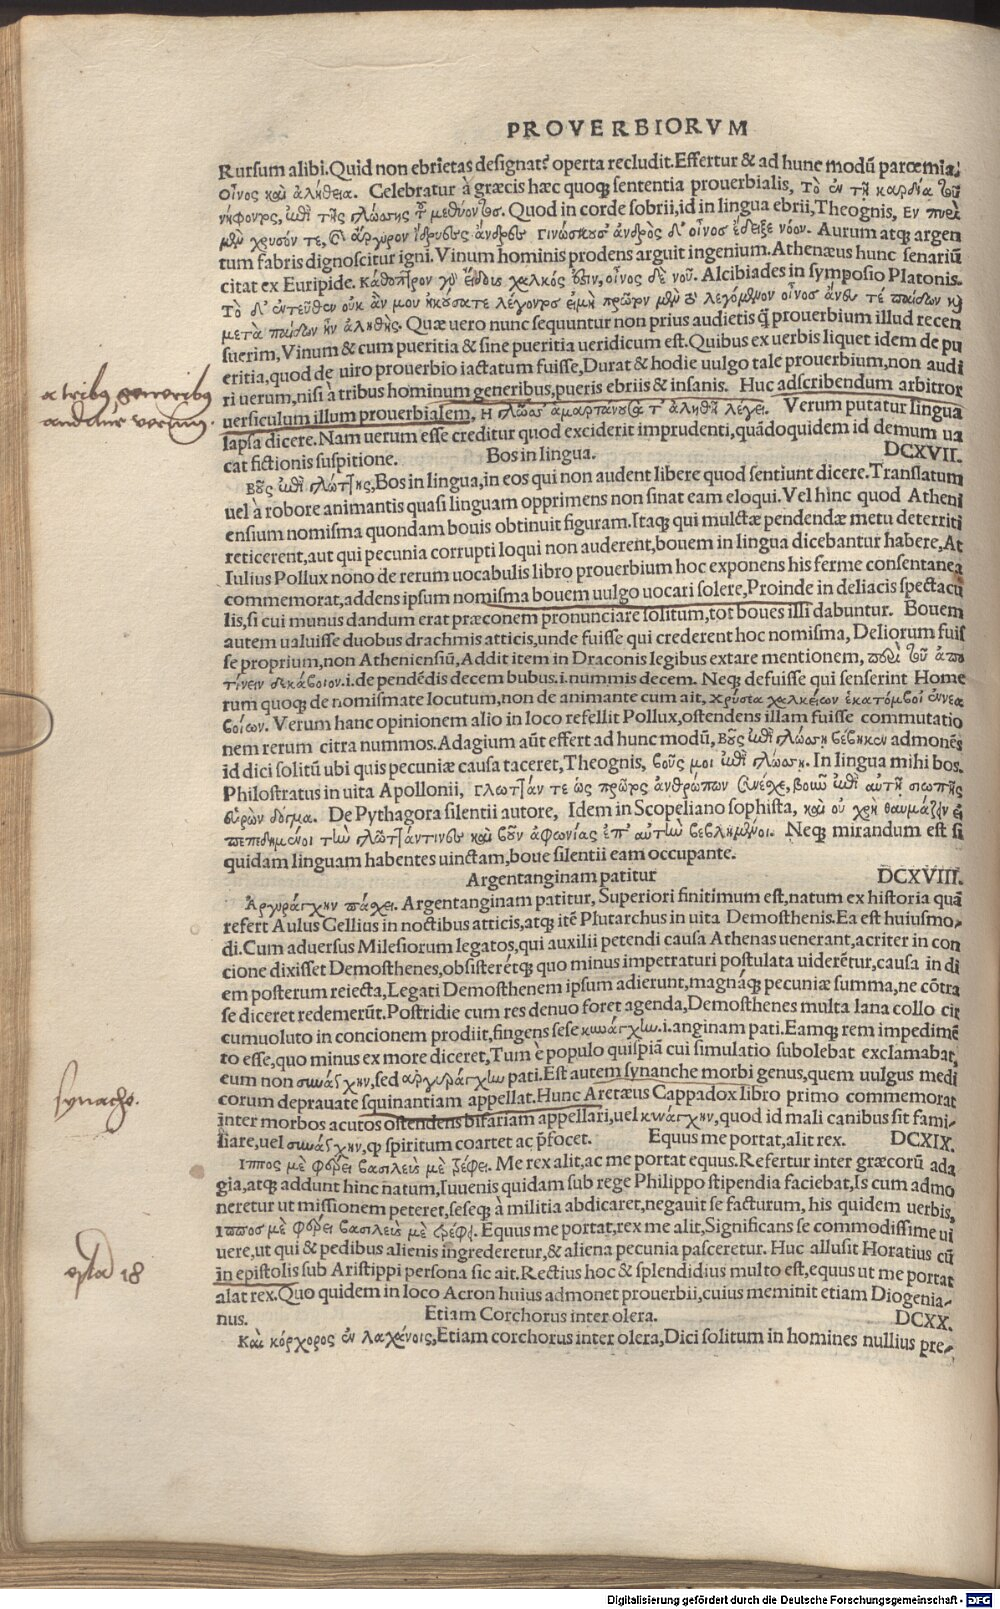 PROVERBIORVM
Rursum alibi.Quid non ebrietas designat? operta recludit.Effertur & ad hunc modū parœmia:
Οἶνος καὶ ἀλήθεια. Celebratur à græcis hæc quoqꝫ sententia prouerbialis, Τὸ ἐν τῇ καρδίᾳ τοῦ
νήφοντος, ἐπὶ τῆς γλώσσης τοῦ μεθύοντος. Quod in corde sobrii,id in lingua ebrii,Theognis, Εν πυρὶ
μὲν χρυσόν τε, καὶ ἄργυρον ἴδριες ἄνδρες γινώσκουσ' ἀνδρὸς δ' οἶνος ἔδειξε νόον. Aurum atqꝫ argen
tum fabris dignoscitur igni.Vinum hominis prodens arguit ingenium.Athenæus hunc senariū
citat ex Euripide. Κάτοπτρον γὰρ εἴδους χαλκός ἐστιν, οἶνος δὲ νοῦ. Alcibiades in symposio Platonis.
Τὸ δ' ἐντεῦθεν οὐκ ἄν μου ἠκούσατε λέγοντος εἰ μὴ πρῶτον μὲν τὸ λεγόμενον οἶνος ἄνευ τε παίδων καὶ
μετὰ παίδων ἦν ἀληθής. Quæ uero nunc sequuntur non prius audietis q̃ prouerbium illud recen
suerim,Vinum & cum pueritia & sine pueritia ueridicum est.Quibus ex uerbis liquet idem de pu
eritia,quod de uiro prouerbio iactatum fuisse,Durat & hodie uulgo tale prouerbium,non audi
ri uerum,nisi à tribus hominum generibus,pueris ebriis & insanis. Huc adscribendum arbitror
uersiculum illum prouerbialem, Η γλῶσσ' ἁμαρτάνουσα τ' ἀληθῆ λέγει. Verum putatur lingua
lapsa dicere.Nam uerum esse creditur quod exciderit imprudenti,quādoquidem id demum ua
cat fictionis suspitione. Bos in lingua. DCXVII.
Βοῦς ἐπὶ γλώττης,Bos in lingua,in eos qui non audent libere quod sentiunt dicere.Translatum
uel à robore animantis quasi linguam opprimens non sinat eam eloqui.Vel hinc quod Atheni
ensium nomisma quondam bouis obtinuit figuram.Itaqꝫ qui mulctæ pendendæ metu deterriti
reticerent,aut qui pecunia corrupti loqui non auderent,bouem in lingua dicebantur habere,At
Iulius Pollux nono de rerum uocabulis libro prouerbium hoc exponens his ferme consentanea
commemorat,addens ipsum nomisma bouem uulgo uocari solere,Proinde in deliacis spectacu
lis,si cui munus dandum erat præconem pronunciare solitum,tot boues illi dabuntur. Bouem
autem ualuisse duobus drachmis atticis,unde fuisse qui crederent hoc nomisma, Deliorum fuis
se proprium,non Atheniensiū,Addit item in Draconis legibus extare mentionem, περὶ τοῦ ἀπο
τίνειν δεκάβοιον.i.de pendēdis decem bubus.i.nummis decem. Neqꝫ defuisse qui senserint Home
rum quoqꝫ de nomismate locutum,non de animante cum ait, χρύσεα χαλκείων ἑκατόμβοι ἐννεα
βοίων. Verum hanc opinionem alio in loco refellit Pollux,ostendens illam fuisse commutatio
nem rerum citra nummos.Adagium aūt effert ad hunc modū, Βοῦς ἐπὶ γλώσσῃ βέβηκεν admonēs
id dici solitū ubi quis pecuniæ causa taceret,Theognis, βοῦς μοι ἐπὶ γλώσσῃ. In lingua mihi bos.
Philostratus in uita Apollonii, γλωτ͂τάν τε ὡς πρῶτος ἀνθρώπων ξυνέσχε, βοῦν ἐπ' αὐτῇ σιωπῆς
εὑρὼν δόγμα. De Pythagora silentii autore, Idem in Scopeliano sophista, καὶ οὐ χρὴ θαυμάζειν εἰ
πεπεδημένοι τὴν γλῶτταν τινες καὶ βοῦν ἀφωνίας ἐπ' αὐτὴν βεβλημένοι. Neqꝫ mirandum est si
quidam linguam habentes uinctam,boue silentii eam occupante.
Argentanginam patitur DCXVIII.
Ἀργυράγχην πάσχει. Argentanginam patitur, Superiori finitimum est,natum ex historia quā
refert Aulus Gellius in noctibus atticis,atqꝫ itē Plutarchus in uita Demosthenis.Ea est huiusmo-
di.Cum aduersus Milesiorum legatos,qui auxilii petendi causa Athenas uenerant,acriter in con
cione dixisset Demosthenes,obsisterétqꝫ quo minus impetraturi postulata uiderētur,causa in di
em posterum reiecta,Legati Demosthenem ipsum adierunt,magnáqꝫ pecuniæ summa,ne cōtra
se diceret redemerūt.Postridie cum res denuo foret agenda,Demosthenes multa lana collo cir
cumuoluto in concionem prodiit,fingens sese κυνάγχην.i.anginam pati.Eamqꝫ rem impedimē
to esse,quo minus ex more diceret,Tum è populo quispiā cui simulatio subolebat exclamabat,
eum non συνάγχην,sed ἀργυράγχην pati.Est autem synanche morbi genus,quem uulgus medi
corum deprauate squinantiam appellat.Hunc Aretæus Cappadox libro primo commemorat
inter morbos acutos ostendens bifariam appellari,uel κυνάγχην,quod id mali canibus sit fami-
liare,uel συνάγχην,ꝙ spiritum coartet ac p̃focet. Equus me portat,alit rex. DCXIX.
Ιππος μὲ φέρει βασιλεὺς μὲ τρέφει. Me rex alit,ac me portat equus.Refertur inter græcorū ada
gia,atqꝫ addunt hinc natum,Iuuenis quidam sub rege Philippo stipendia faciebat,Is cum admo
neretur ut missionem peteret,seseqꝫ à militia abdicaret,negauit se facturum, his quidem uerbis,
Ιππος μὲ φέρει βασιλεὺς μὲ τρέφει. Equus me portat,rex me alit,Significans se commodissime ui
uere,ut qui & pedibus alienis ingrederetur,& aliena pecunia pasceretur. Huc allusit Horatius cū
in epistolis sub Aristippi persona sic ait.Rectius hoc & splendidius multo est,equus ut me portat
alat rex.Quo quidem in loco Acron huius admonet prouerbii,cuius meminit etiam Diogenia-
nus. Etiam Corchorus inter olera. DCXX.
Καὶ κόρχορος ἐν λαχάνοις,Etiam corchorus inter olera,Dici solitum in homines nullius pre-
a tribus generibus
auditur verum.
synache.
epla 18
Digitalisierung gefördert durch die Deutsche Forschungsgemeinschaft - DFG